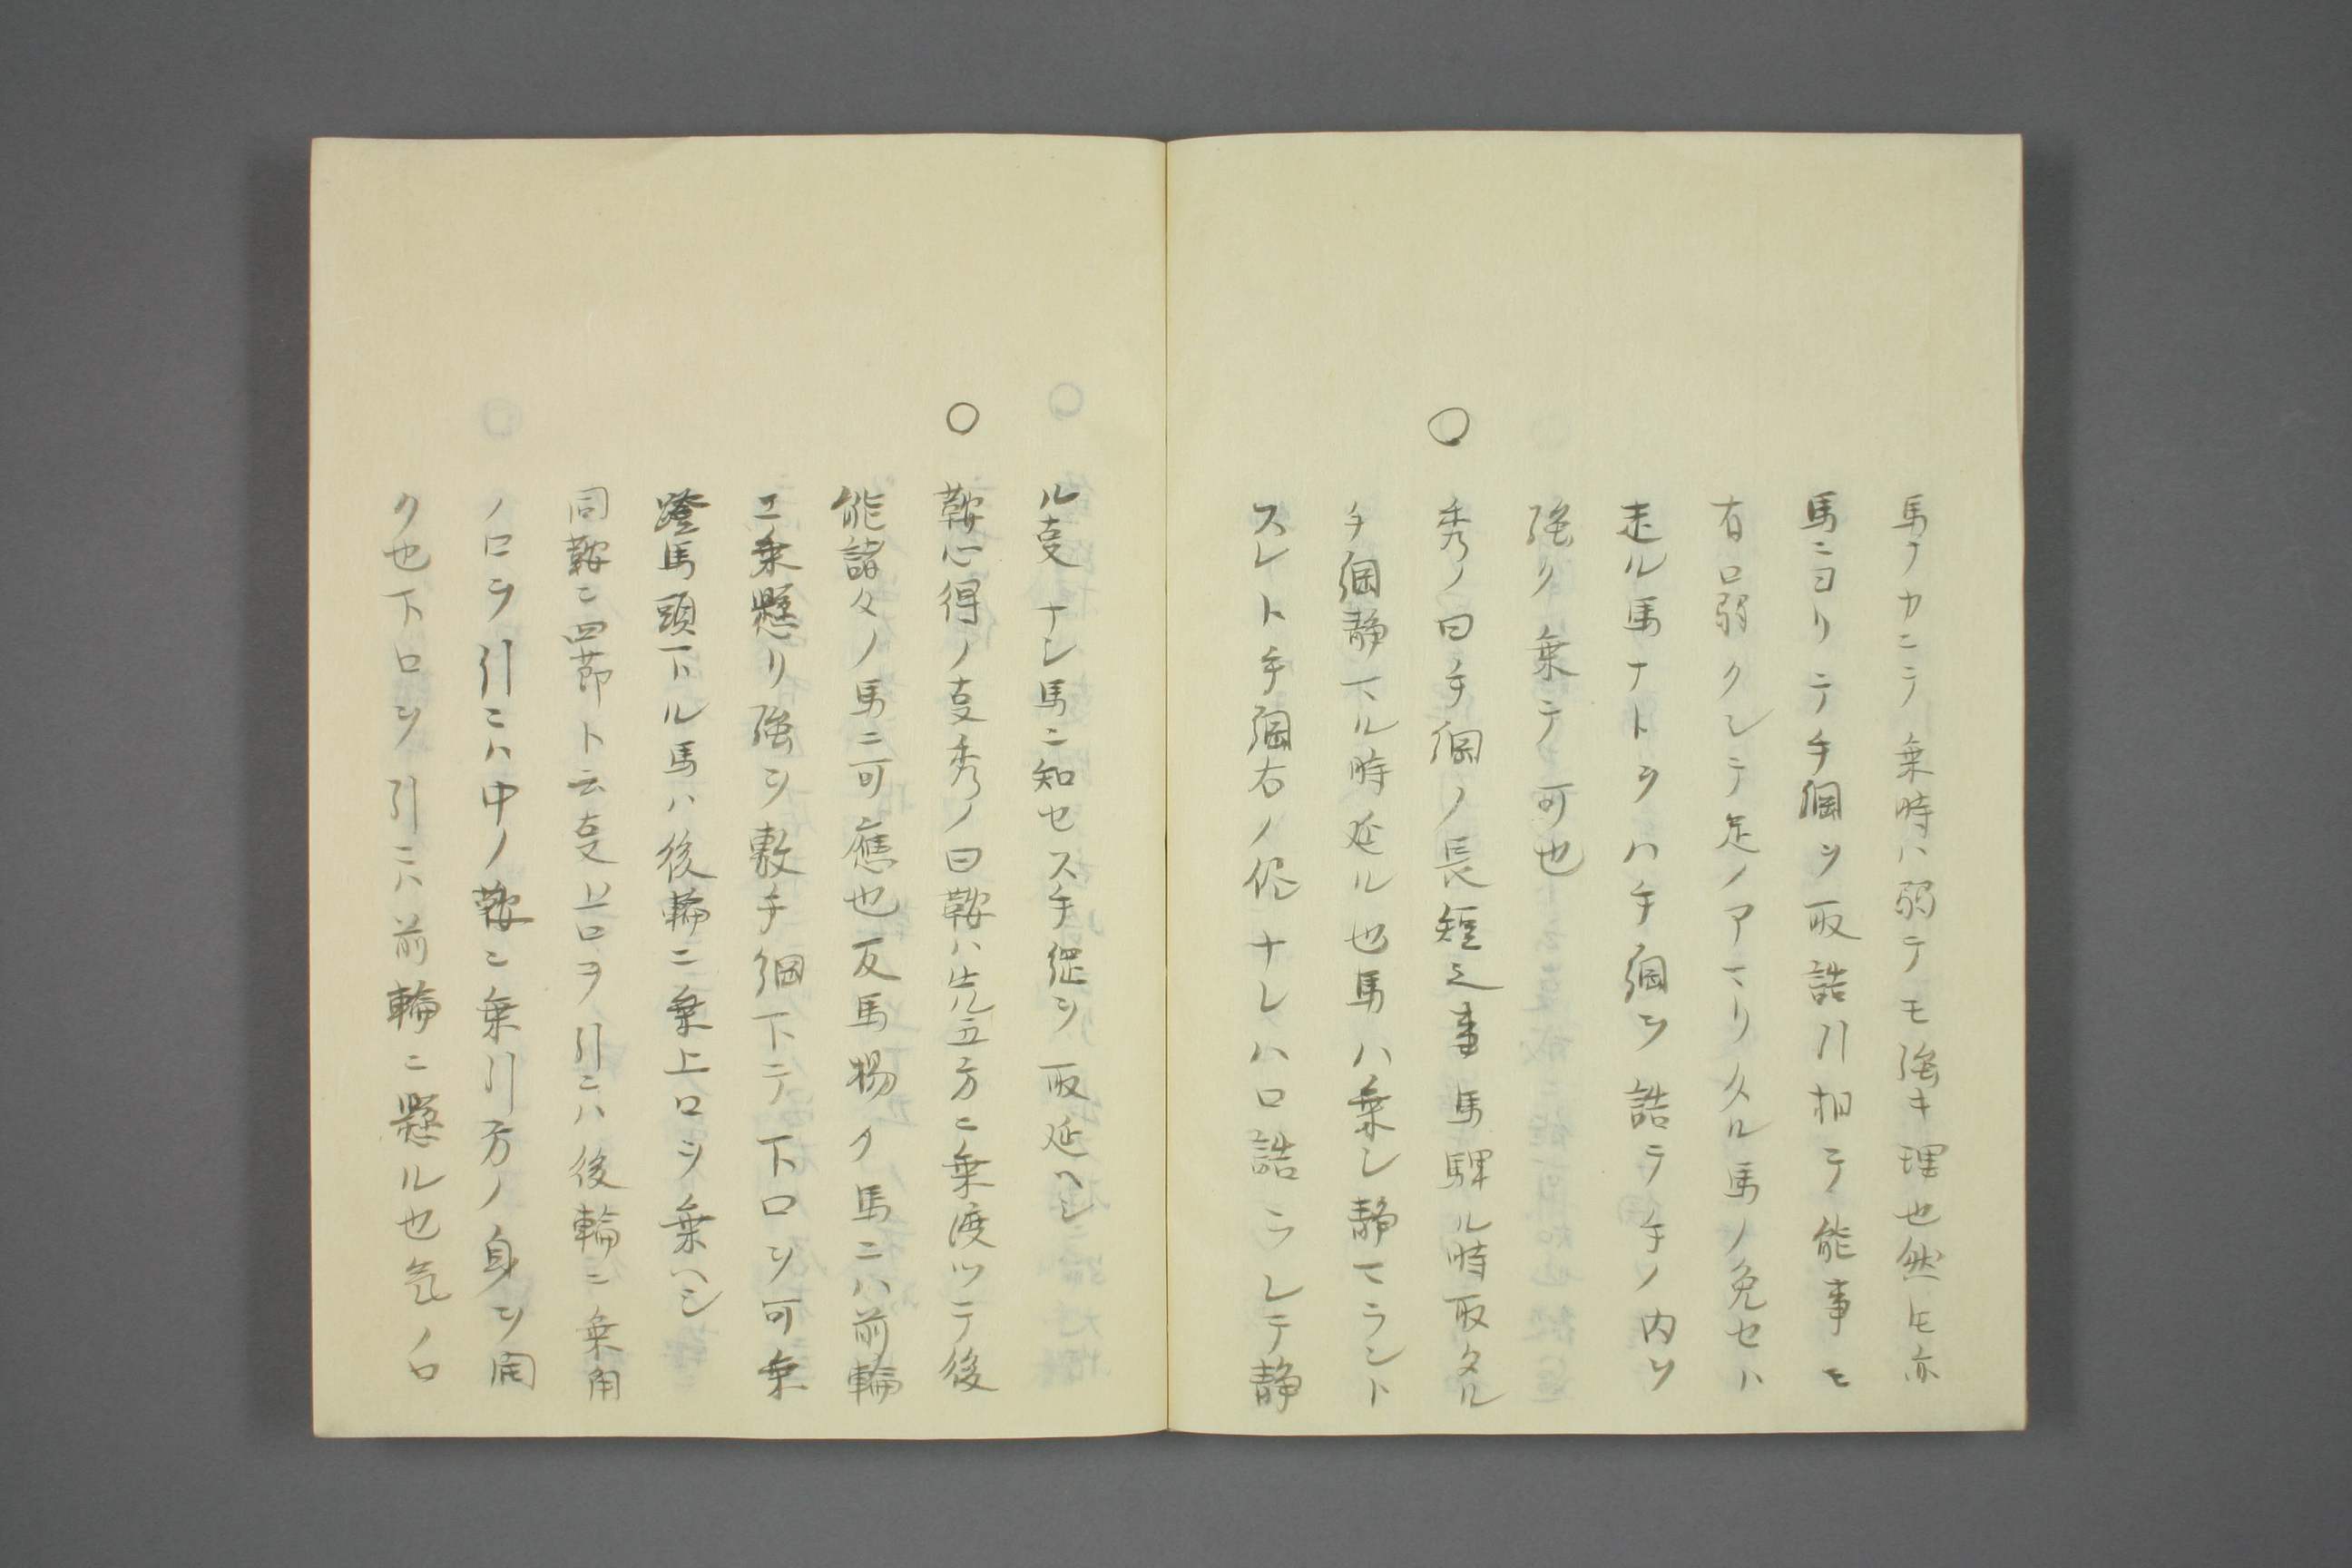 馬ノカニテ乗時ハ弱テモ強キ理也然ㇳモ亦
馬ニヨリテ手綱ヲ取詰引相テ能事モ
有口弱クシテ足ノアマリタル馬ノ免セハ
走ル馬ナトヲハ手綱ヲ詰テ手ノ内ヲ
強リ乗テ可也
○ 秀ノ曰手綱ノ長短之事馬騨ル時取タル
手綱静マル時延ル也馬ハ乗シ静マラント
スレト手綱右ノ侭ナレハ口詰ラレテ静
ル叓ナシ馬ニ知セス手綱ヲ取延ヘシ
○ 鞍心得ノ叓秀ノ曰鞍ハ先五方ニ乗渡ツテ後
能諸々ノ馬ニ可應也反馬楊ク馬ニハ前輪
エ乗懸リ強ヲ敷手綱下テ下口ヲ可乗
蹬馬頭下ル馬ハ後輪ニ乗上口ヲ乗ヘシ
同鞍ニ四節ト云叓上口ヲ引ニハ後輪ニ乗角
ノ口ヲ引ニハ中ノ鞍ニ乗引方ノ身ヲ用
ク也下口ヲ引ニハ前輪ニ懸ル也気ノ口